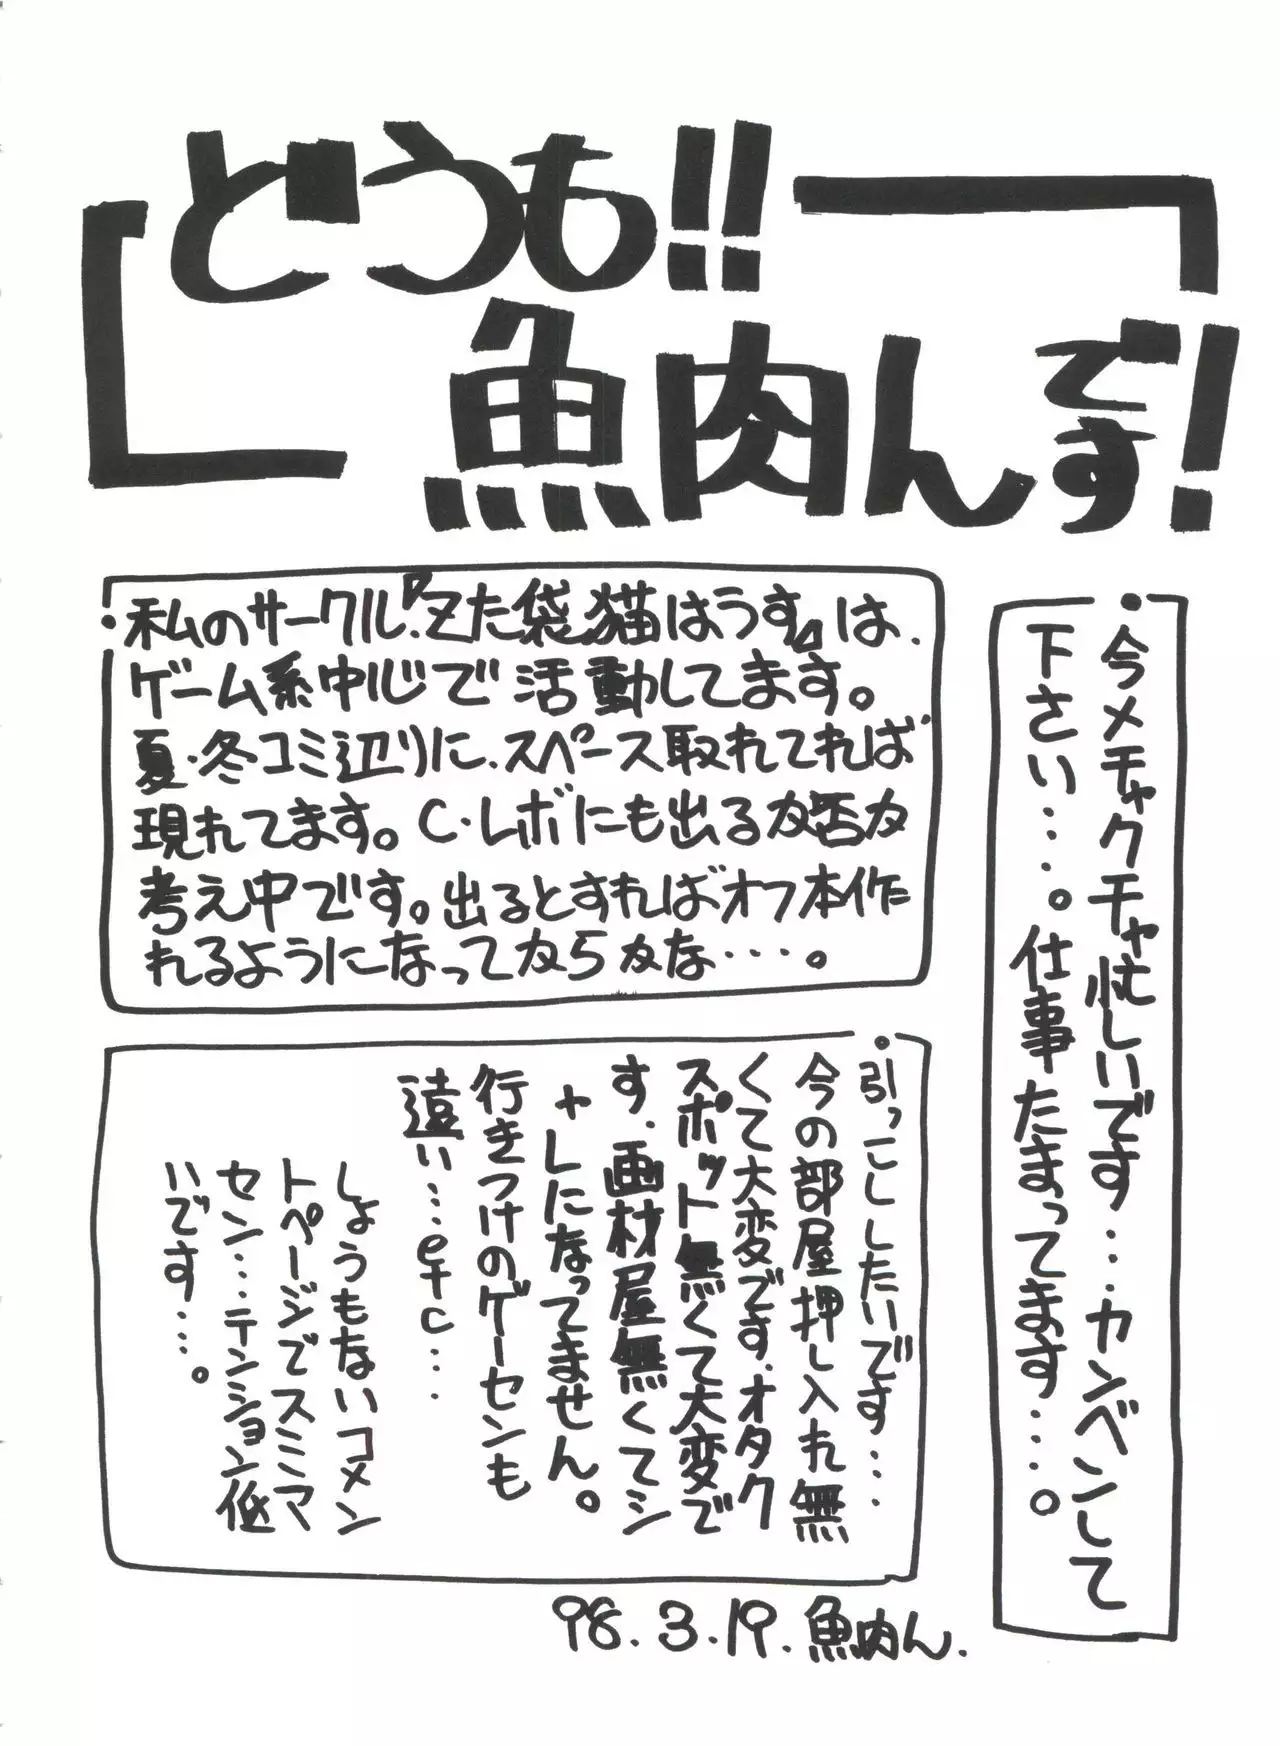 どうも!!
魚肉んです!
・今メチャクチャ忙しいです…. カンベンして
下さい….。仕事たまってます….。
・私のサークル、『Zた袋猫はうす』は、
ゲーム系中心で活動してます。
夏・冬コミ辺りに、スペース取れてれば
現れてます。C・レボにも出るか否か
考え中です。出るとすればオフ本作
れるようになってからかな….。
・引っこししたいです….
今の部屋押し入れ無
くて大変です.オタク
スポット無くて大変で
す.画材屋無くてシ
ャレになってません。
行きつけのゲーセンも
遠い…etc….
しょうもないコメン
トページでスミマ
セン…テンション低
いです….。
98.3.19.魚肉ん.